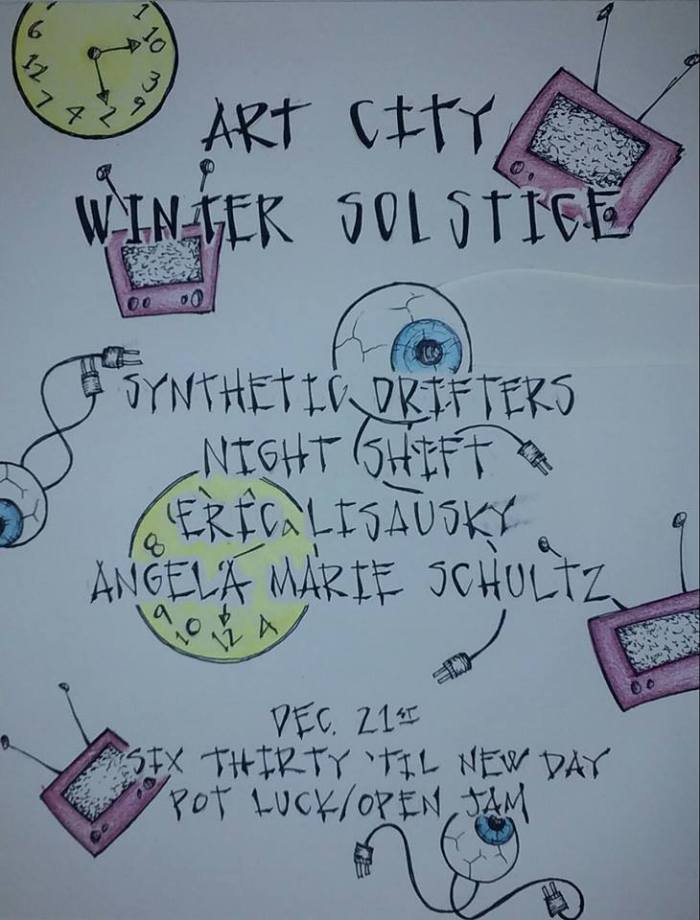 1
6 10
12 3
7 4 2 9
ART CITY
WINTER SOLSTICE
SYNTHETIC DRIFTERS
NIGHT SHIFT
ERICa LISAUSKY
8
ANGELA MARIE SCHULTZ
9 10 12 4
DEC. 21ST
SIX THIRTY 'TIL NEW DAY
POT LUCK/OPEN JAM